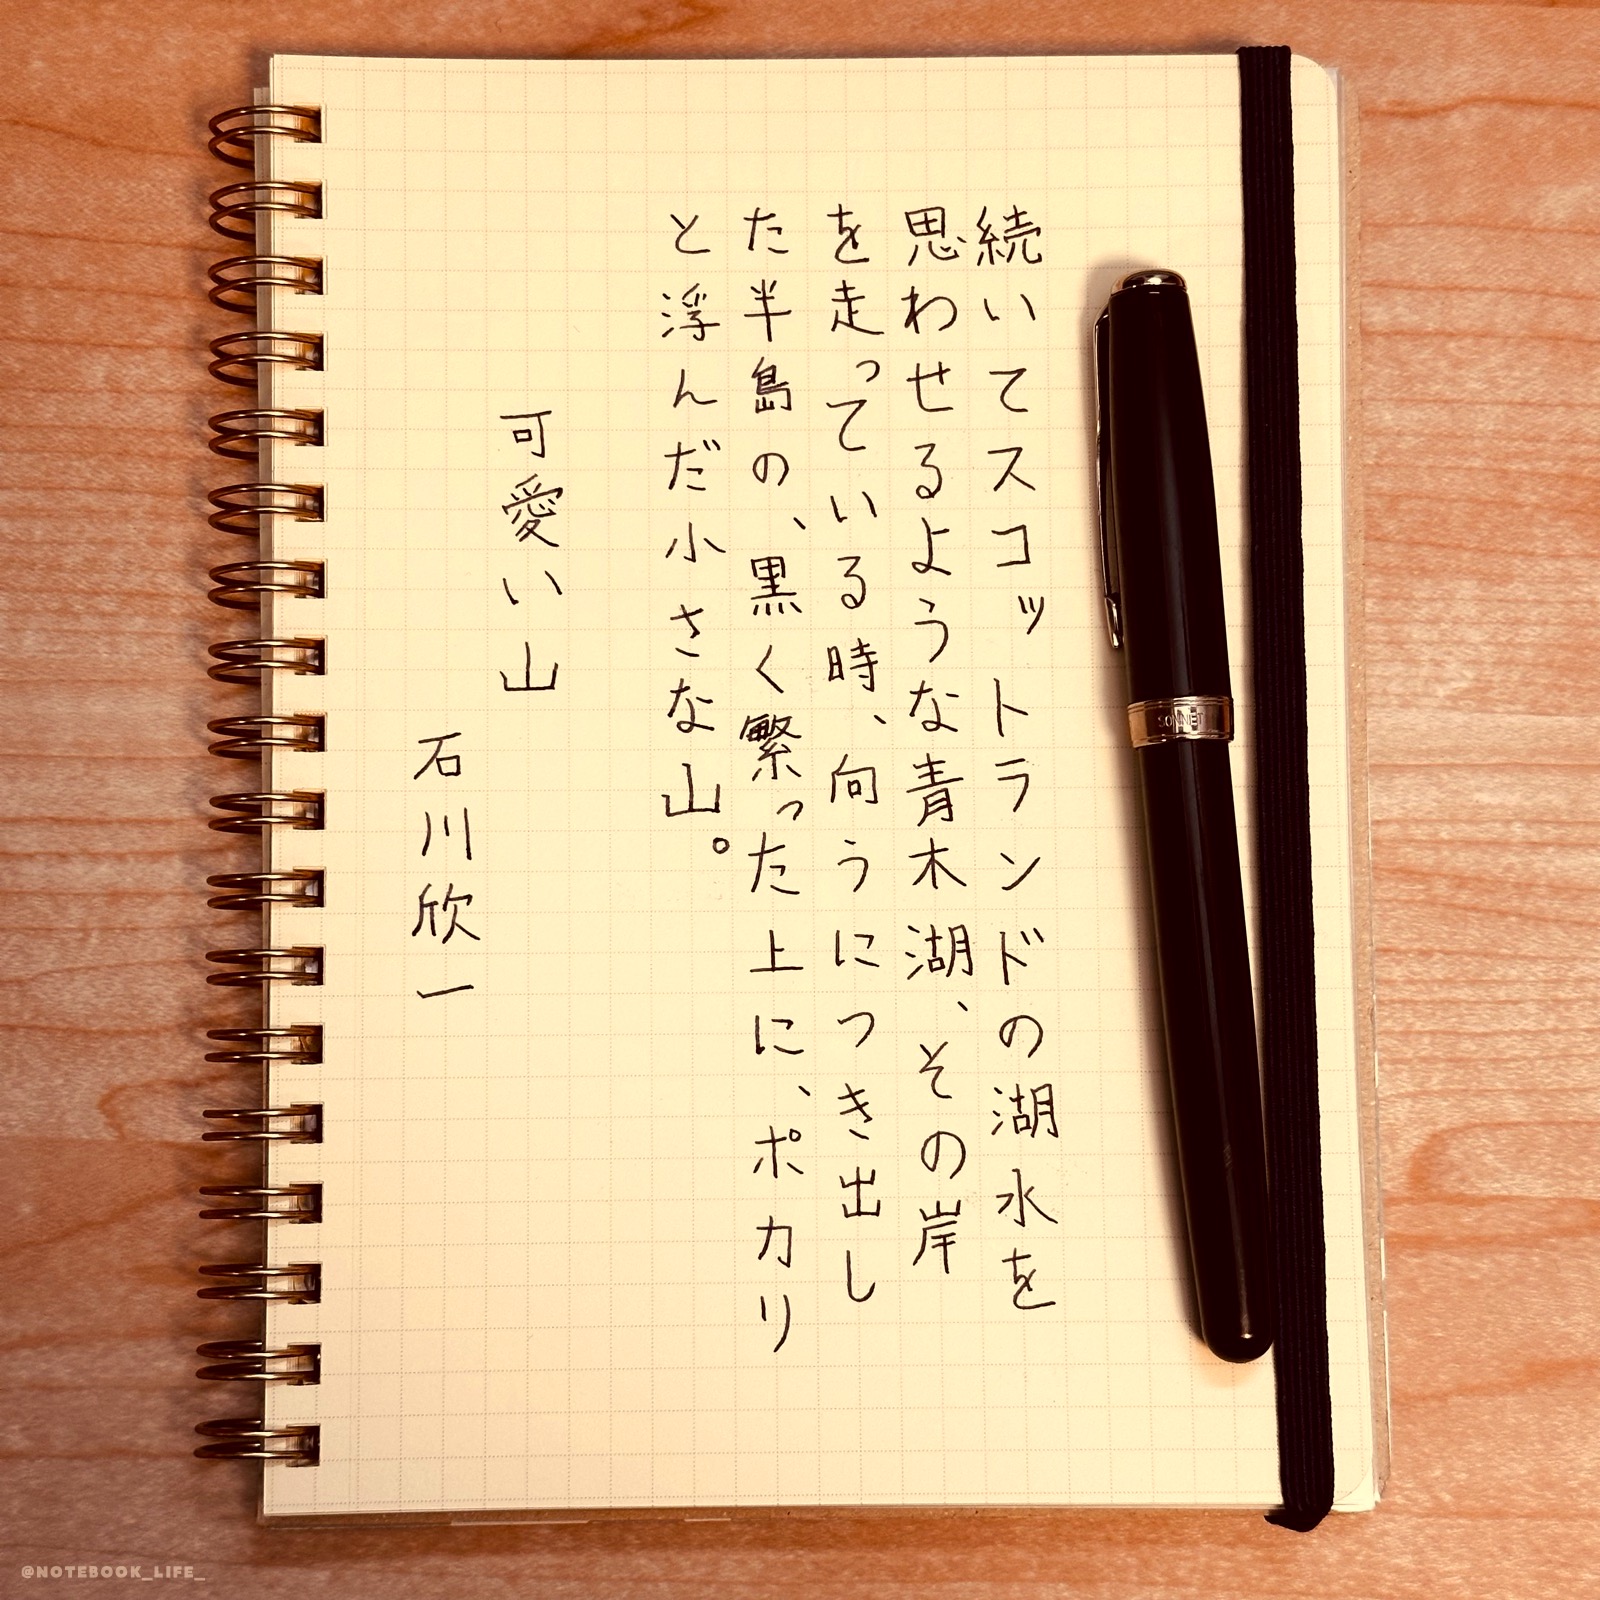 続いてスコットランドの湖水を
思わせるような青木湖、その岸
を走っている時、向うにつき出し
た半島の、黒く繁った上に、ポカリ
と浮んだ小さな山。
可愛い山
石川欣一
SONNET
@NOTEBOOK_LIFE_